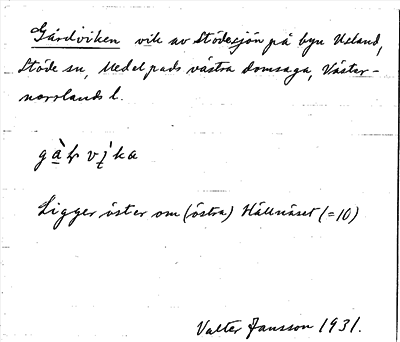 Gårdviken vik av Stödesjön på byn Usland,
Stöde sn, Medelpads västra domsaga, Väster-
norrlands l.
Ligger öster om (östra) Hållnäset (=10)
Valter Jansson 1931.